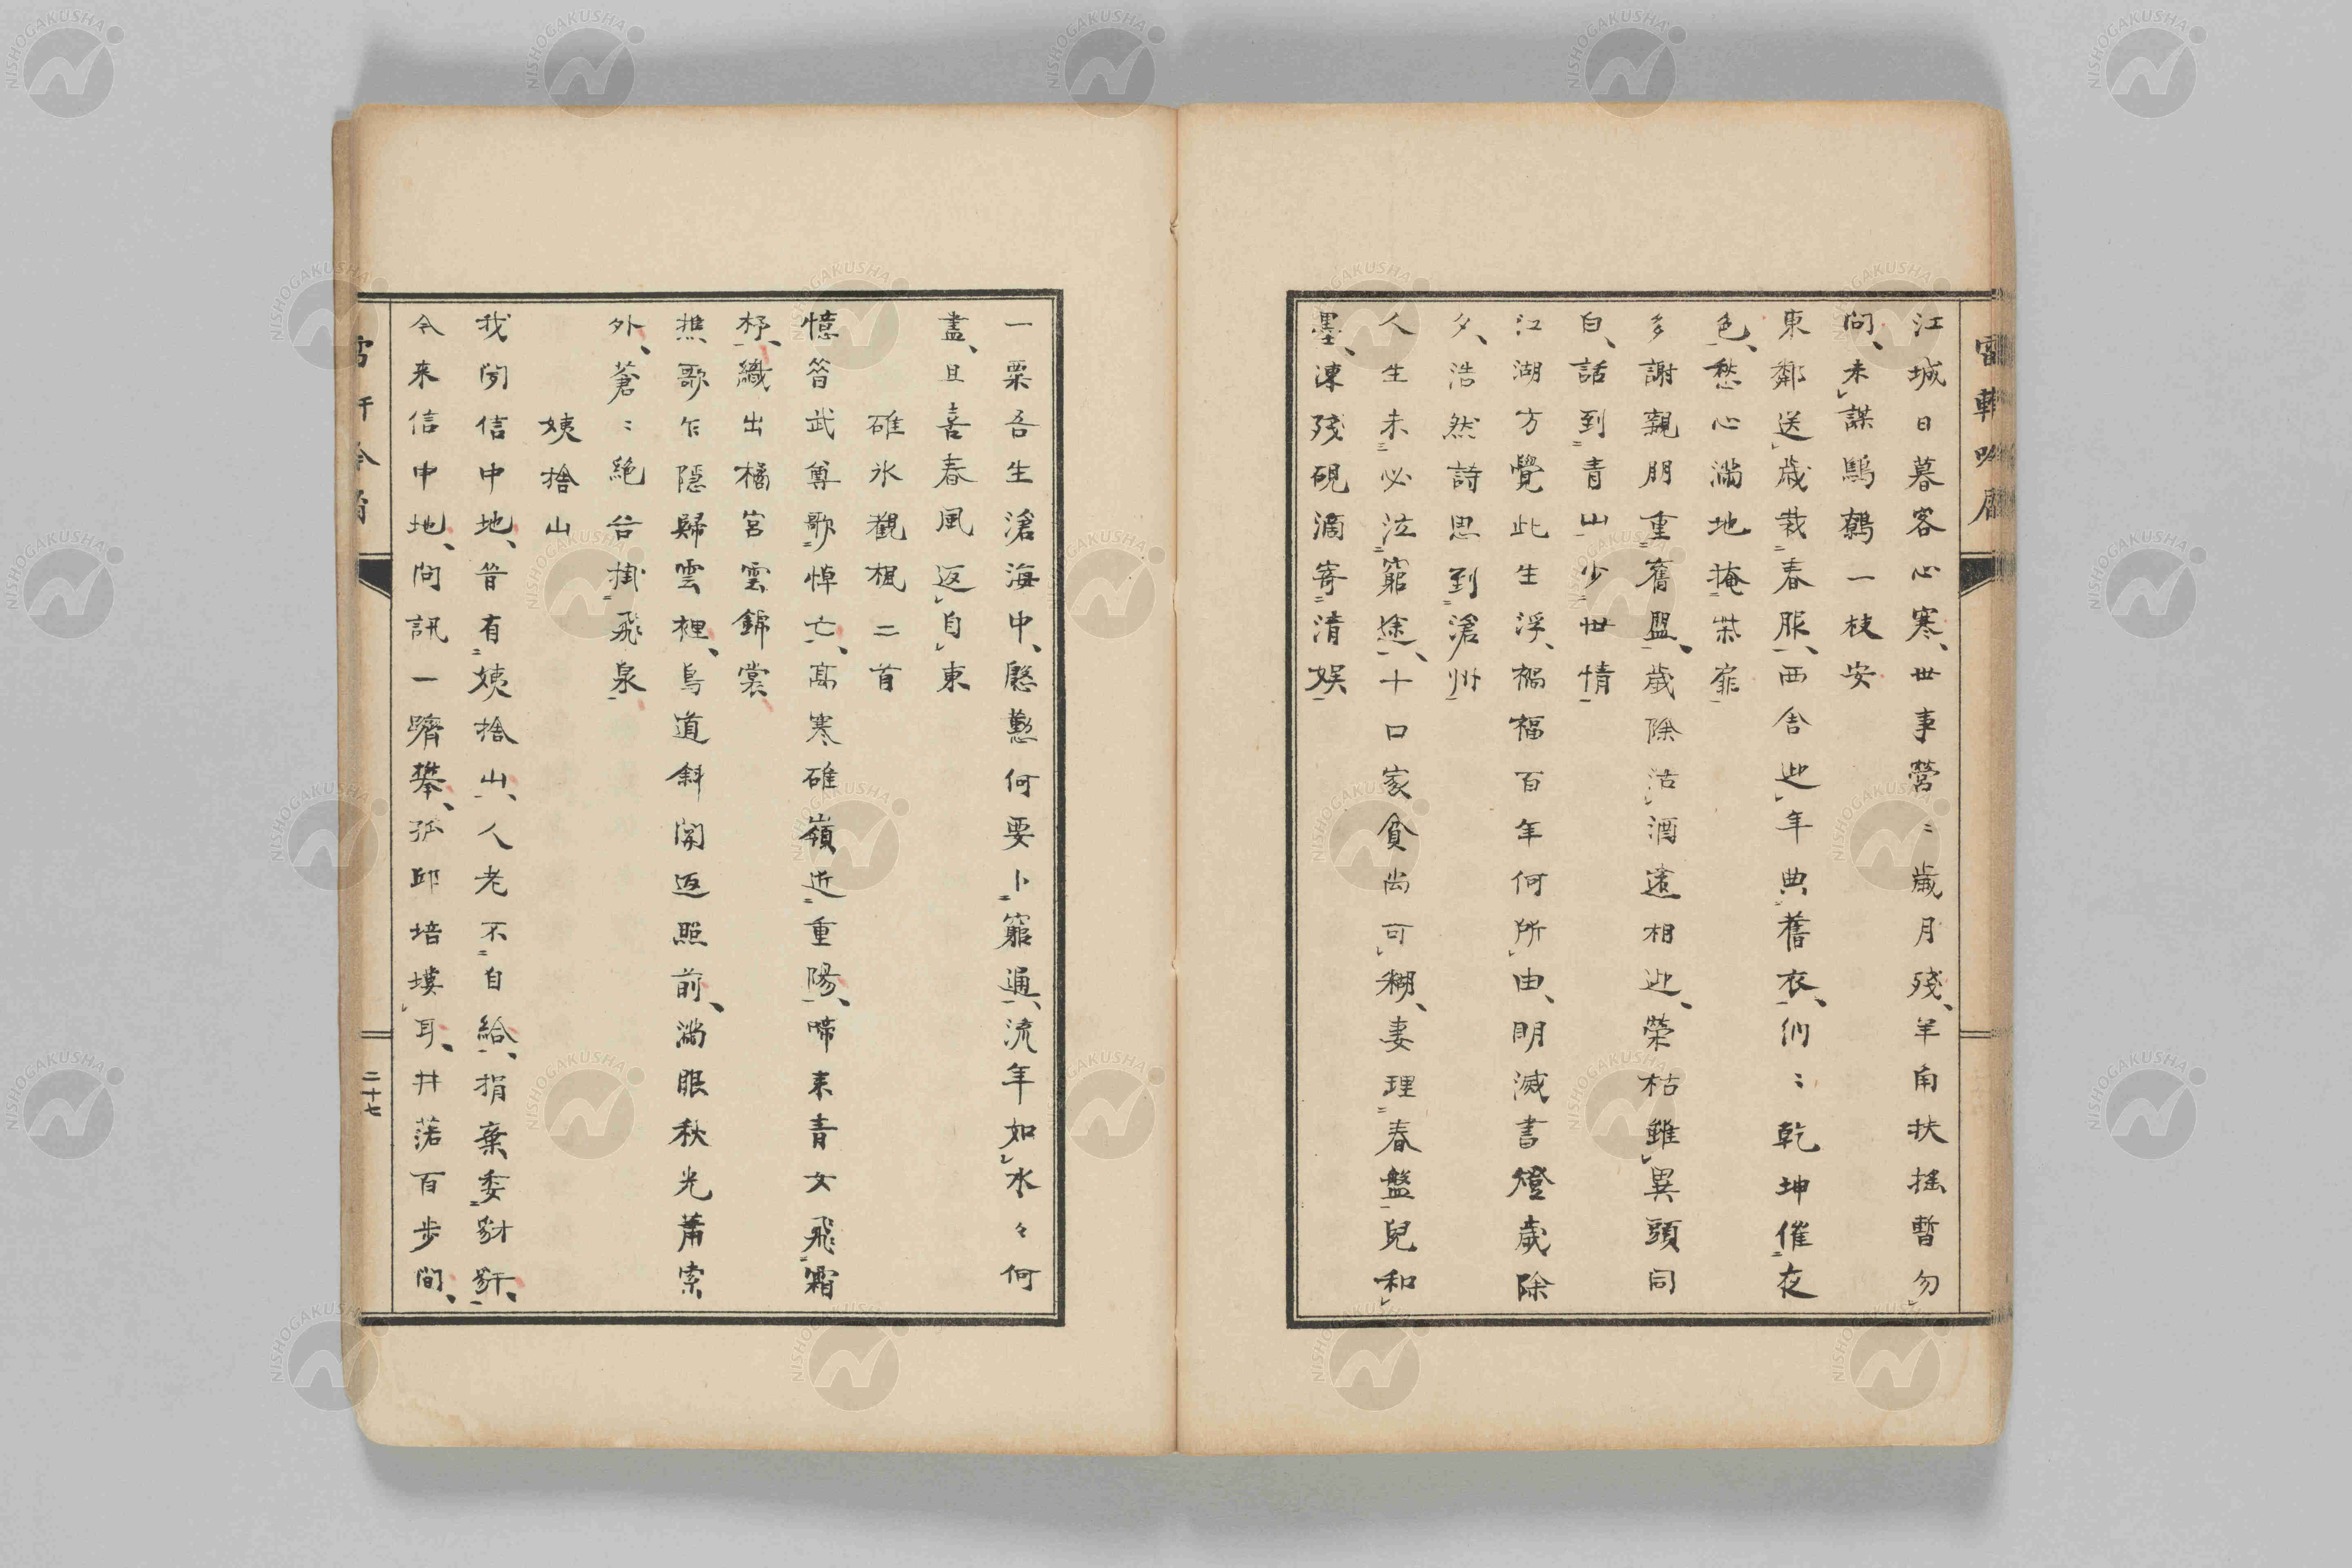 江城日暮客心寒、世事營〻歳月殘、羊角扶搖暫勿
問、未謀鷦鷯一枝安
東鄰送歳栽春服、西舍迎年典舊衣、們〻乾坤催夜
色、愁心滿地掩柴扉
多謝親朋重舊盟、歳除沽酒遠相迎、榮枯雖異頭同
白、話到青山少世情
江湖方覺此生浮、禍福百年何所由、明滅書燈歳除
夕、浩然詩思到滄州
人生未必泣窮途、十口家貧尚可糊、妻理春盤兒和
墨、凍殘硯滴寄清娯
一栗吾生滄海中、慇懃何要卜窮通、流年如水々何
盡、且喜春風返自東
碓氷觀楓二首
憶昔武尊歌悼亡、髙寒碓嶺近重陽、啼來青女飛霜
杼、織出橘宮雲錦裳
樵歌乍隱歸雲裡、鳥道斜開返照前、滿眼秋光蕭索
外、蒼〻絶谷掛飛泉
姨捨山
我聞信中地、昔有姨捨山、人老不自給、捐棄委豺豻、
今来信中地、問訊一躋攀、孤邱培塿耳、井落百歩間、
二十七